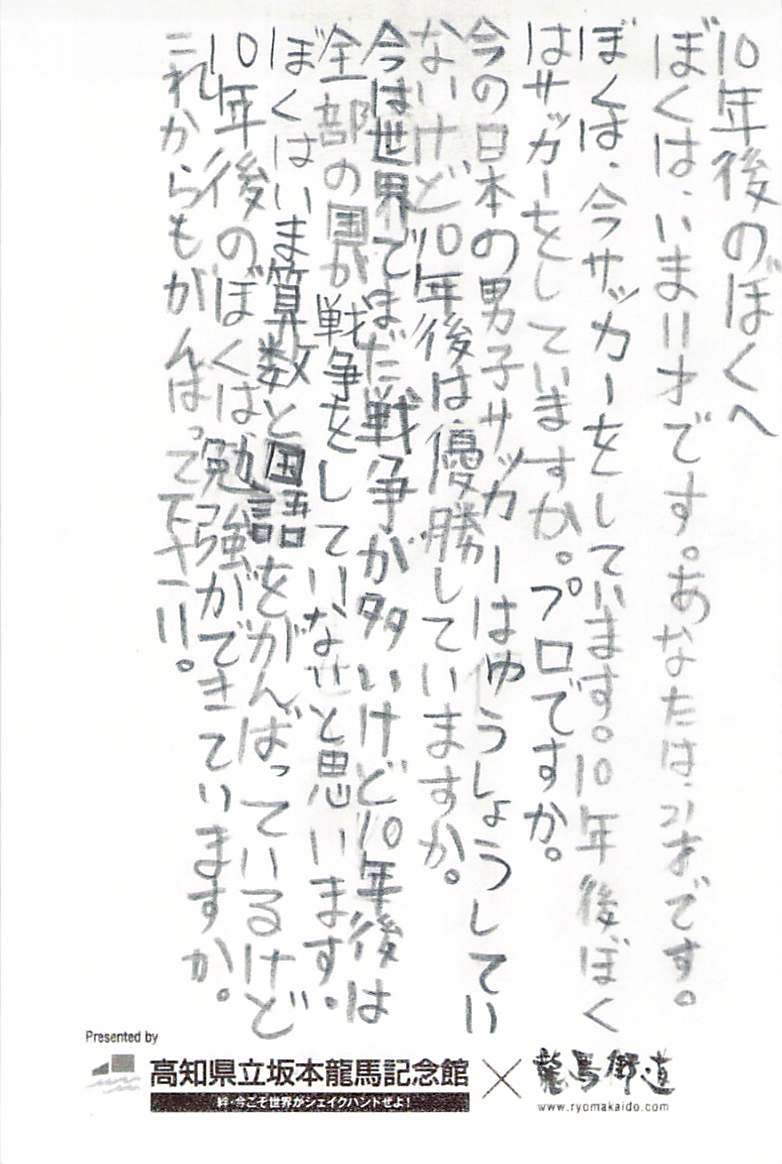 10年後のぼくへ
ぼくは、いま11才です。あなたは、21才です。
ぼくは、今サッカーをしています。10年後ぼく
はサッカーをしていますか。プロですか。
今の日本の男子サッカーはゆうしょうしてい
ないけど10年後は優勝していますか。
今は世界でまだ戦争が多いけど10年後は
全部の国が戦争をしていなせと思います。
ぼくはいま算数と国語をがんばっているけど
10年後のぼくは、勉強ができていますか。
これからもがんばって下さい。
Presented by
高知県立坂本龍馬記念館
絆・今こそ世界がシェイクハンドぜよ!
×
龍馬街道
www.ryomakaido.com